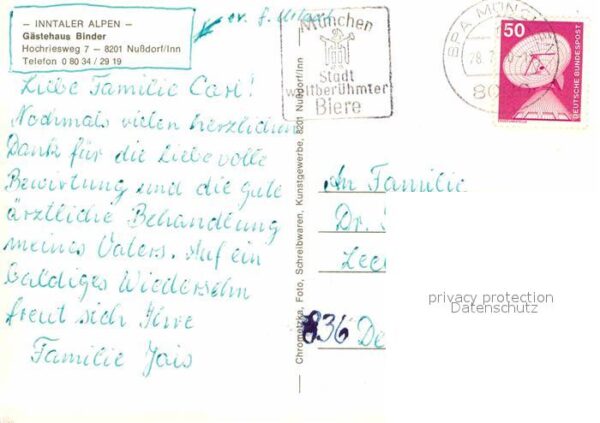 – INNTALER ALPEN –
Gästehaus Binder
Hochriesweg 7 – 8201 Nußdorf/Inn
Telefon 0 80 34 / 29 19
Liebe Familie Cari!
Nochmals vielen herzlichen
Dank für die liebevolle
Bewirtung und die gute
ärztliche Behandlung
meines Vaters. Auf ein
baldiges Wiedersehn
freut sich Ihre
Familie Jais
Chrometzka, Foto, Schreibwaren, Kunstgewerbe, 8201 Nußdorf/Inn
München
Stadt
weltberühmter
Biere
BPA MÜNCH
28.
80
50
DEUTSCHE BUNDESPOST
An Familie
Dr.
836 De
privacy protection
Datenschutz